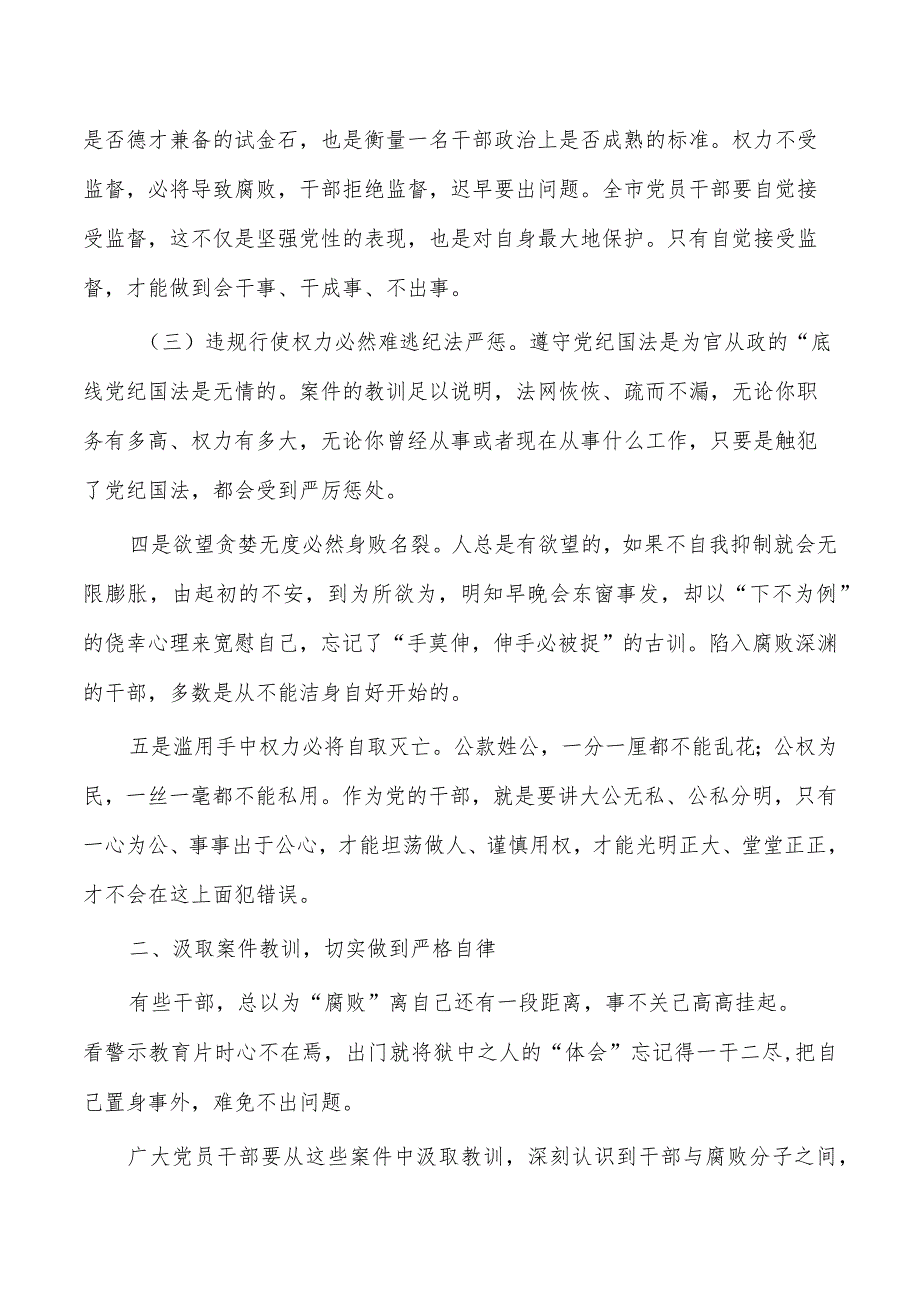 是否德才兼备的试金石，也是衡量一名干部政治上是否成熟的标准。权力不受
监督，必将导致腐败，干部拒绝监督，迟早要出问题。全市党员干部要自觉接
受监督，这不仅是坚强党性的表现，也是对自身最大地保护。只有自觉接受监
督，才能做到会干事、干成事、不出事。
（三）违规行使权力必然难逃纪法严惩。遵守党纪国法是为官从政的“底
线党纪国法是无情的。案件的教训足以说明，法网恢恢、疏而不漏，无论你职
务有多高、权力有多大，无论你曾经从事或者现在从事什么工作，只要是触犯
了党纪国法，都会受到严厉惩处。
四是欲望贪婪无度必然身败名裂。人总是有欲望的，如果不自我抑制就会无
限膨胀，由起初的不安，到为所欲为，明知早晚会东窗事发，却以“下不为例”
的侥幸心理来宽慰自己，忘记了“手莫伸，伸手必被捉”的古训。陷入腐败深渊
的干部，多数是从不能洁身自好开始的。
五是滥用手中权力必将自取灭亡。公款姓公，一分一厘都不能乱花；公权为
民，一丝一毫都不能私用。作为党的干部，就是要讲大公无私、公私分明，只有
一心为公、事事出于公心，才能坦荡做人、谨慎用权，才能光明正大、堂堂正正，
才不会在这上面犯错误。
二、汲取案件教训，切实做到严格自律
有些干部，总以为“腐败”离自己还有一段距离，事不关己高高挂起。
看警示教育片时心不在焉，出门就将狱中之人的“体会”忘记得一干二尽,把自
己置身事外，难免不出问题。
广大党员干部要从这些案件中汲取教训，深刻认识到干部与腐败分子之间，